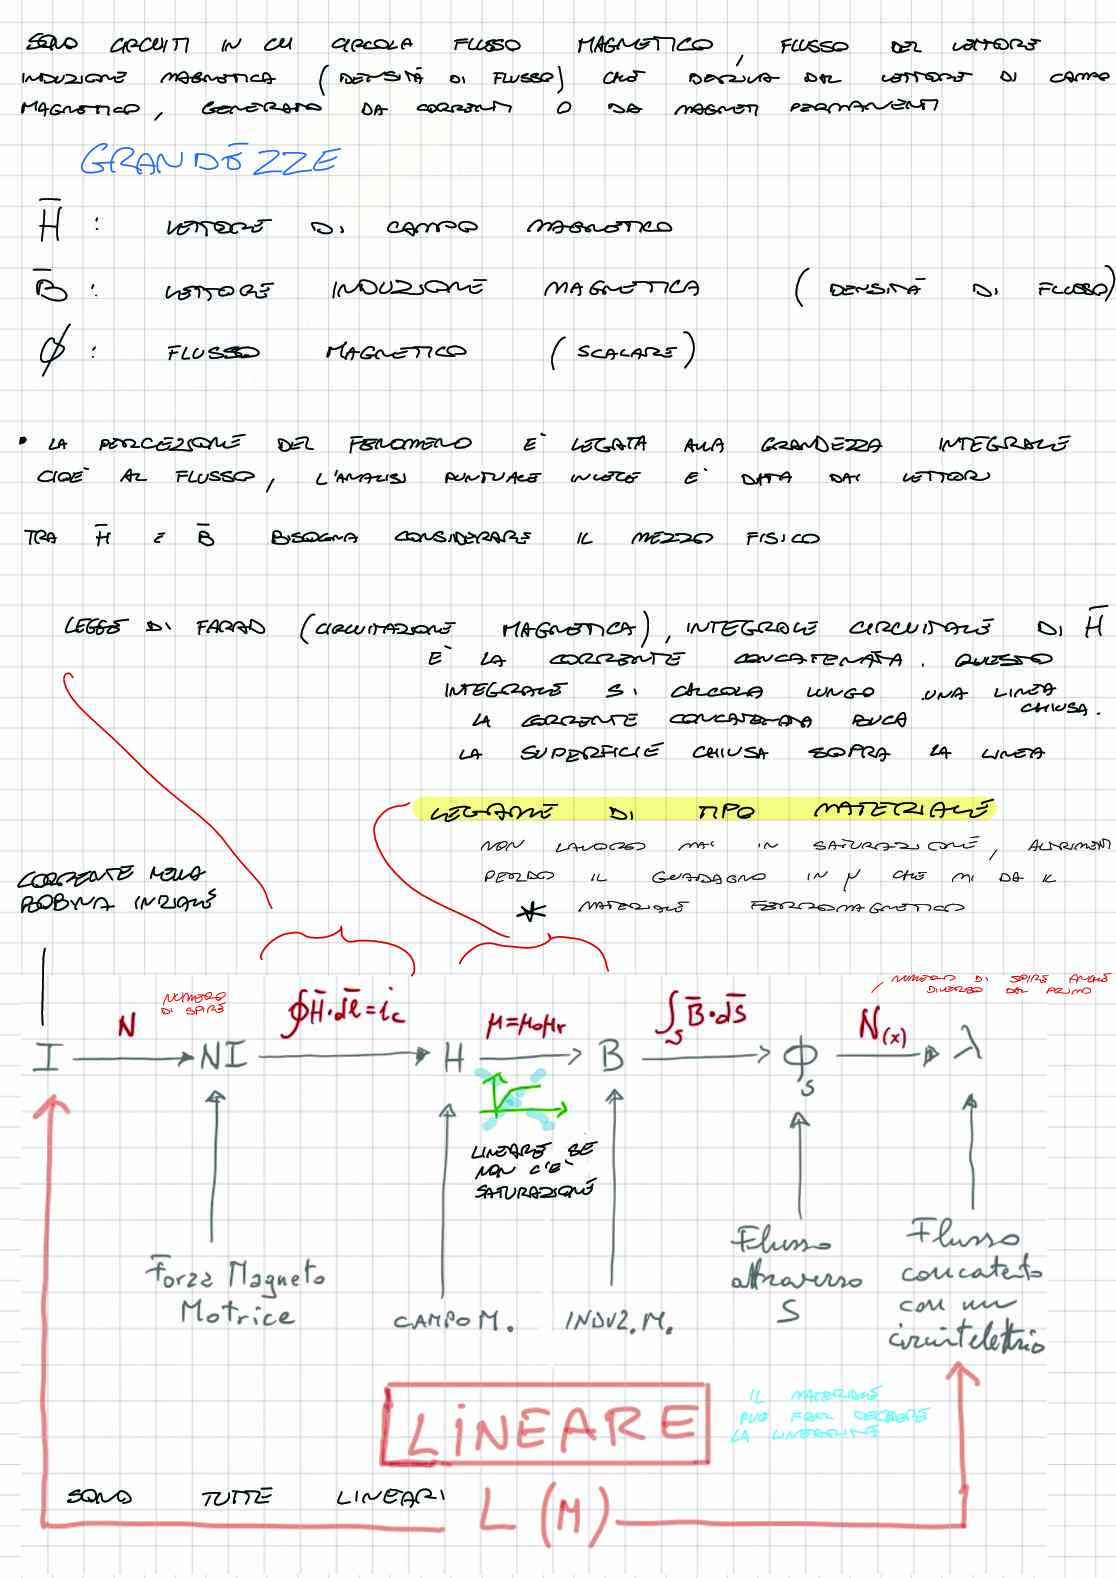 SONO CIRCUITI IN CUI CIRCOLA FLUSSO MAGNETICO, FLUSSO DEL VETTORE
INDUZIONE MAGNETICA (DENSITÀ DI FLUSSO) CHE DERIVA DAL VETTORE DI CAMPO
MAGNETICO, GENERATO DA CORRENTI O DA MAGNETI PERMANENTI
GRANDEZZE
H̅ : VETTORE DI CAMPO MAGNETICO
B̅ : VETTORE INDUZIONE MAGNETICA (DENSITÀ DI FLUSSO)
Φ : FLUSSO MAGNETICO (SCALARE)
• LA PERCEZIONE DEL FENOMENO E' LEGATA ALLA GRANDEZZA INTEGRALE
CIOE' AL FLUSSO, L'ANALISI PUNTUALE INVECE E' DATA DAI VETTORI
TRA H̅ E B̅ BISOGNA CONSIDERARE IL MEZZO FISICO
LEGGE DI FARAD (CIRCUITAZIONE MAGNETICA), INTEGRALE CIRCUITALE DI H̅
E' LA CORRENTE CONCATENATA. QUESTO
INTEGRALE SI CALCOLA LUNGO UNA LINEA
CHIUSA.
LA CORRENTE CONCATENATA BUCA
LA SUPERFICIE CHIUSA SOPRA LA LINEA
LEGAME DI TIPO MATERIALE
NON LAVORO MAI IN SATURAZIONE, ALTRIMENTI
PERDO IL GUADAGNO IN μ CHE MI DA IL
* MATERIALE FERROMAGNETICO
CORRENTE NELLA
BOBINA INIZIALE
NUMERO DI SPIRE ANCHE
DIVERSO DAL PRIMO
NUMERO
DI SPIRE
N ∮H̅·dl̅=ic μ=μ0μr ∫S B̅·dS̅ N(x)
I NI H B ΦS λ
LINEARE SE
NON C'È
SATURAZIONE
Forza Magneto
Motrice
CAMPO M.
INDUZ. M.
Flusso
attraverso
S
Flusso
concatento
con un
circuit elettrio
LINEARE
IL MATERIALE
PUÒ FAR DECADERE
LA LINEARITÀ
SONO TUTTE LINEARI
L (M)